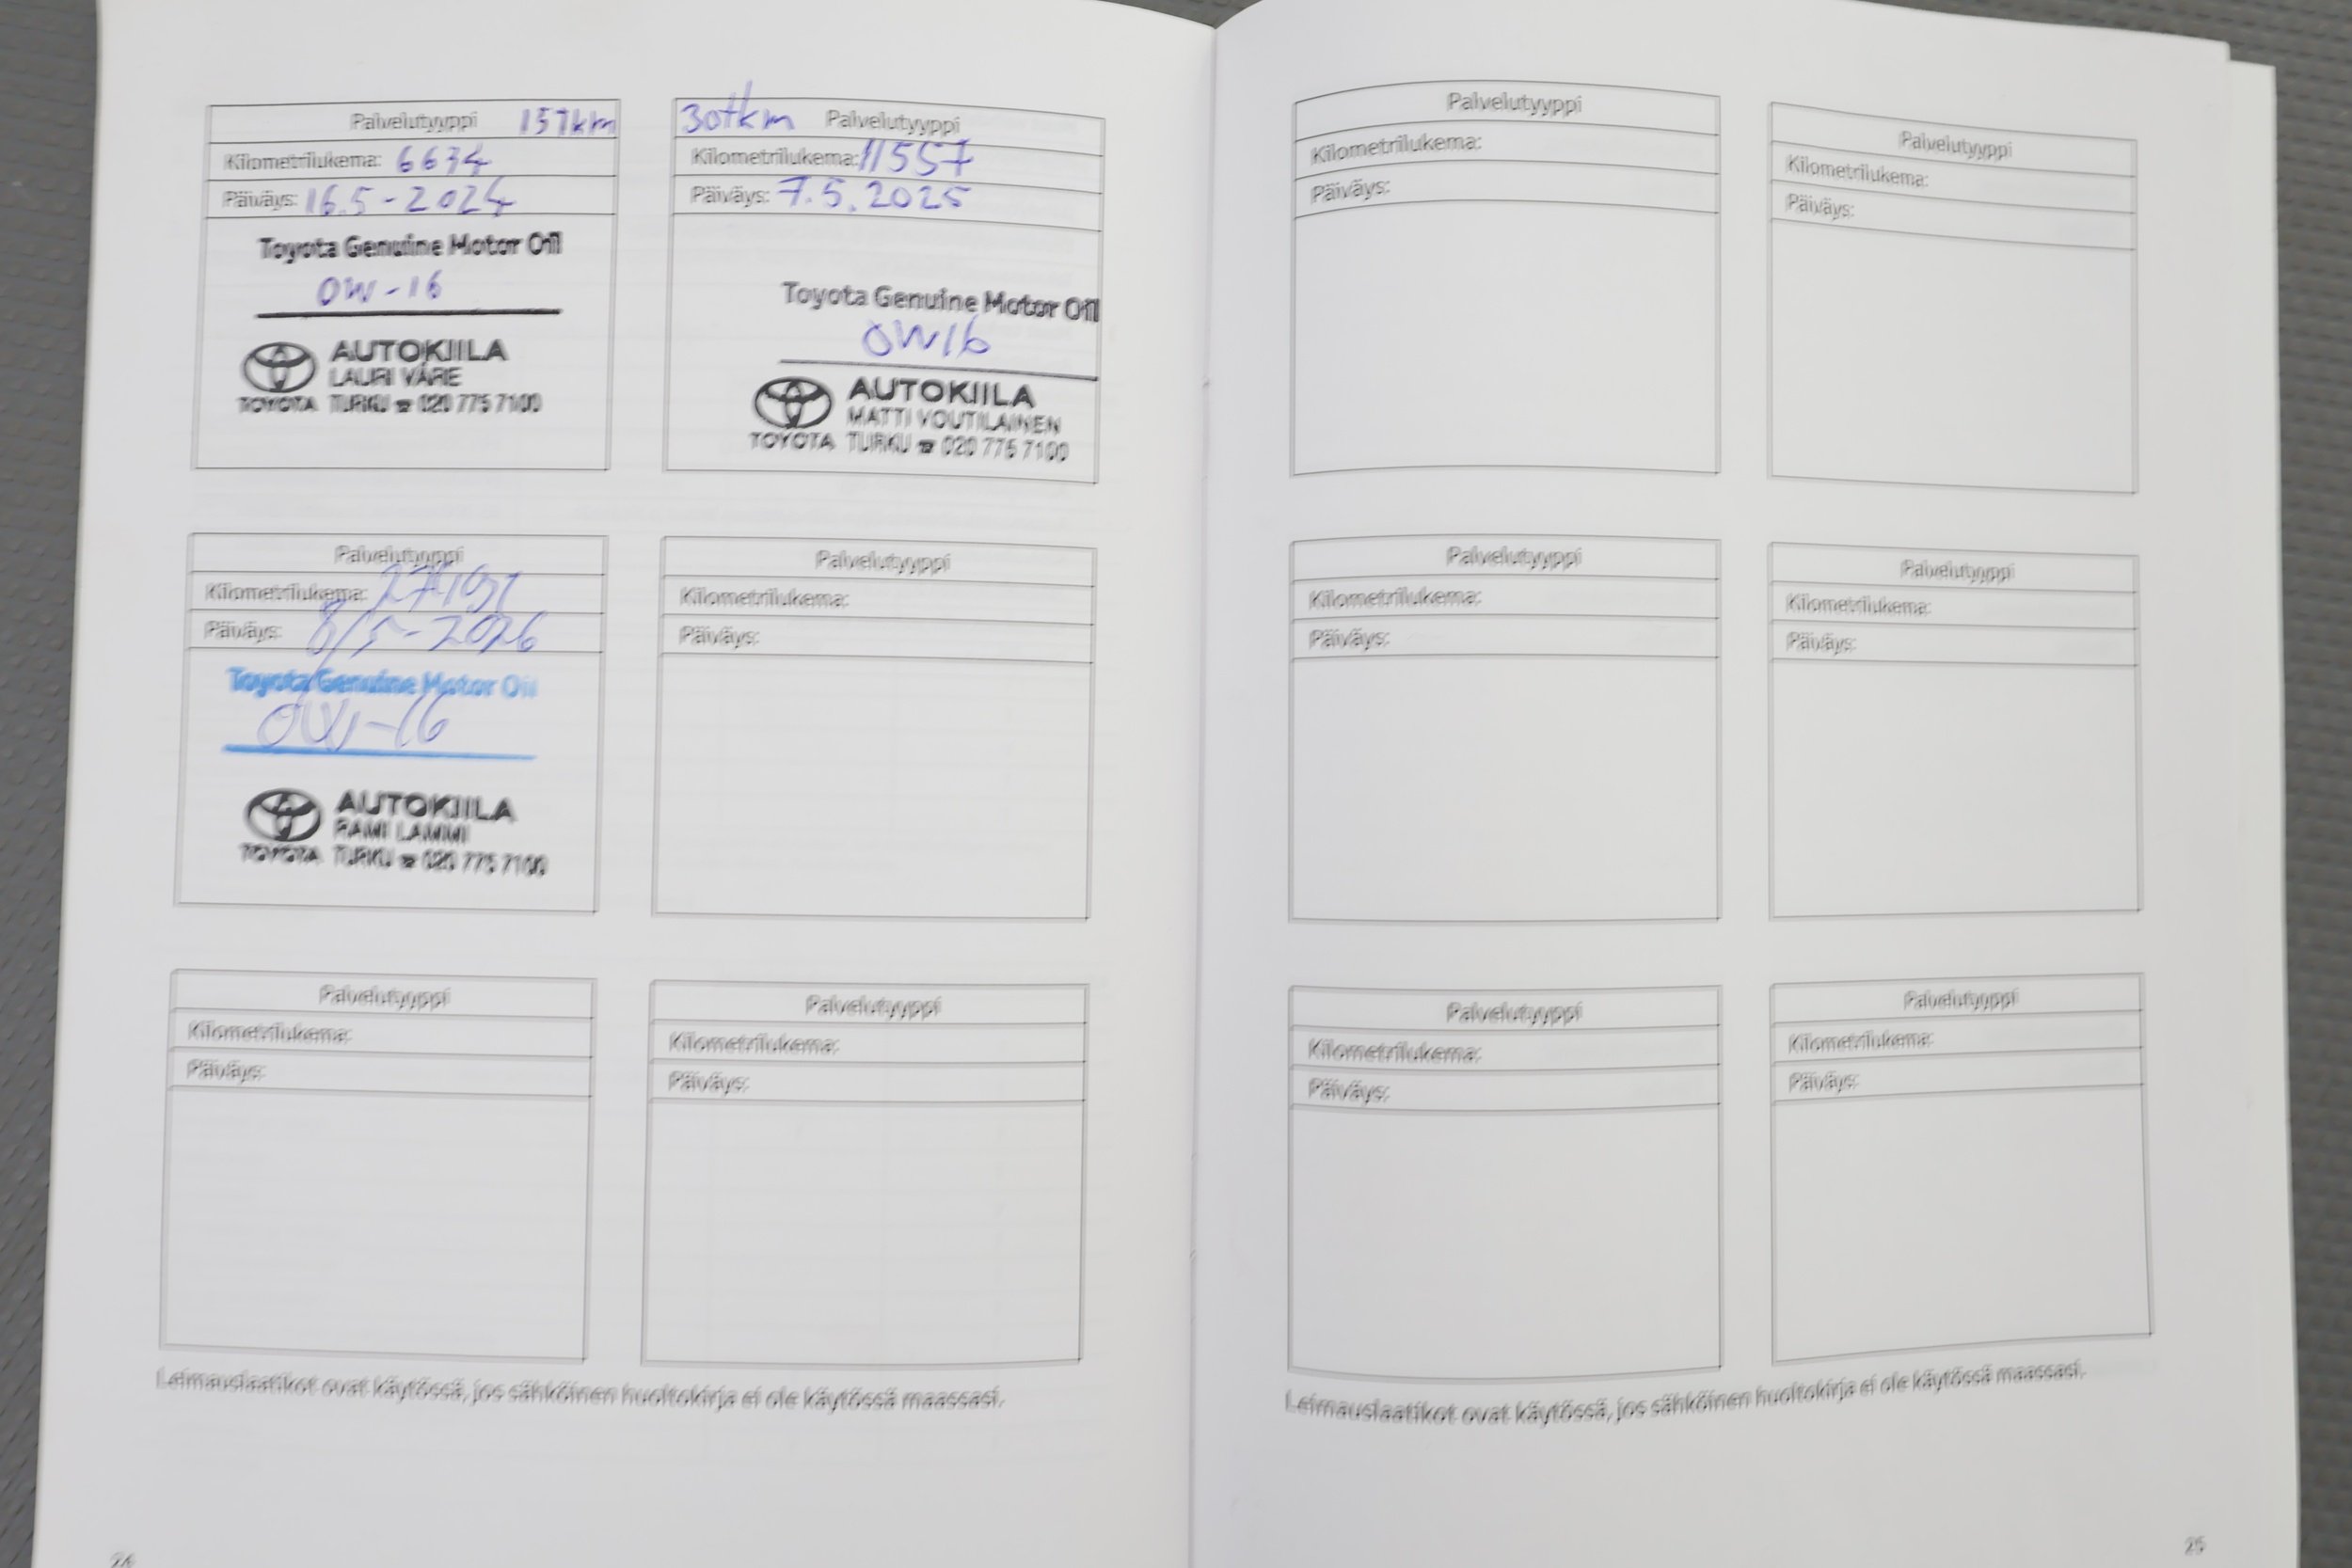 Palvelutyyppi 15Tkm
Kilometrilukema: 6634
Päiväys: 16.5-2024
Toyota Genuine Motor Oil
0W-16
AUTOKIILA
LAURI VARE
TOYOTA TURKU ☎ 020 775 7100
30tkm Palvelutyyppi
Kilometrilukema: 11557
Päiväys: 7.5.2025
Toyota Genuine Motor Oil
0W16
AUTOKIILA
MATTI VOUTILAINEN
TOYOTA TURKU ☎ 020 775 7100
Palvelutyyppi
Kilometrilukema:
Päiväys: 8/5-2026
Toyota Genuine Motor Oil
0W-16
AUTOKIILA
RAMI LAMMI
TOYOTA TURKU ☎ 020 775 7100
Palvelutyyppi
Kilometrilukema:
Päiväys:
Palvelutyyppi
Kilometrilukema:
Päiväys:
Palvelutyyppi
Kilometrilukema:
Päiväys:
Leimauslaatikot ovat käytössä, jos sähköinen huoltokirja ei ole käytössä maassasi.
24
Palvelutyyppi
Kilometrilukema:
Päiväys:
Palvelutyyppi
Kilometrilukema:
Päiväys:
Palvelutyyppi
Kilometrilukema:
Päiväys:
Palvelutyyppi
Kilometrilukema:
Päiväys:
Palvelutyyppi
Kilometrilukema:
Päiväys:
Palvelutyyppi
Kilometrilukema:
Päiväys:
Leimauslaatikot ovat käytössä, jos sähköinen huoltokirja ei ole käytössä maassasi.
25